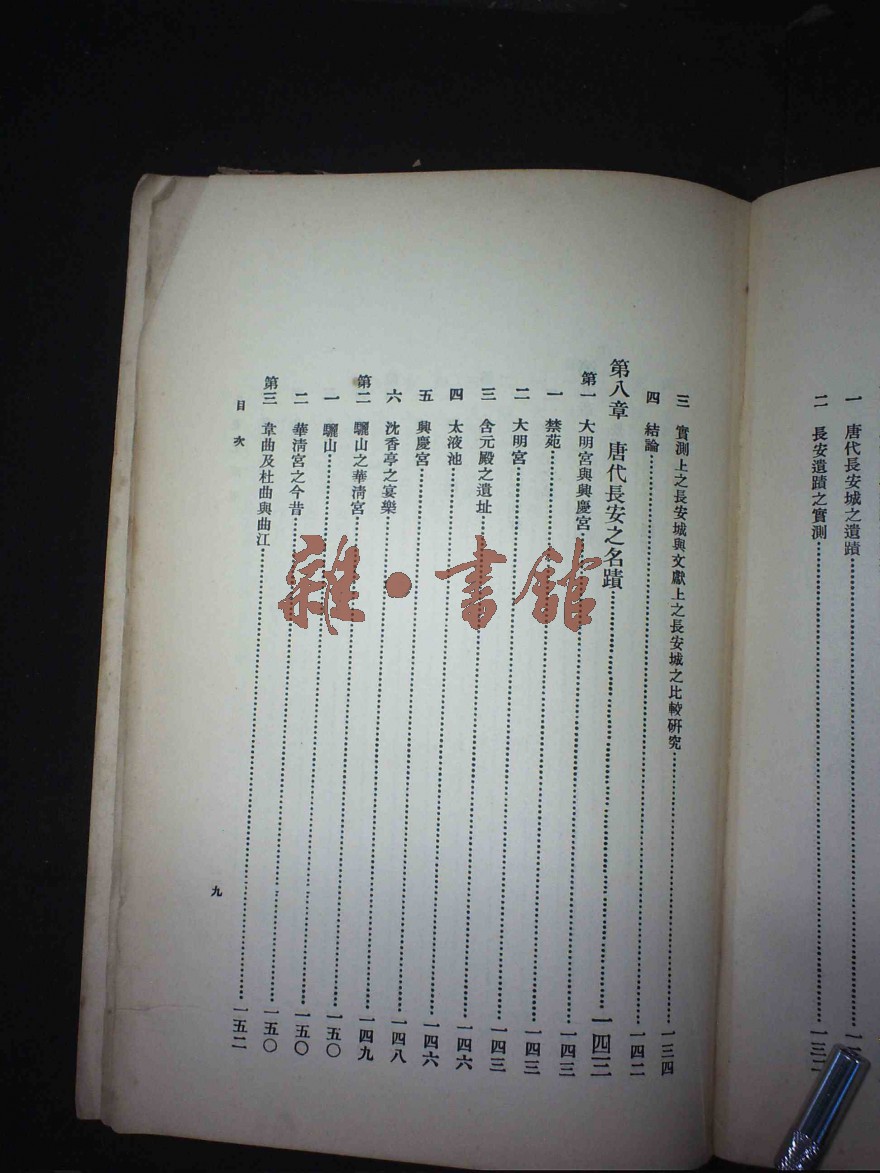 一　唐代長安城之遺蹟
二　長安遺蹟之實測
三　實測上之長安城與文獻上之長安城之比較研究……一三四
四　結論……一四二
第八章　唐代長安之名蹟……一四三
第一　大明宮與興慶宮……一四三
一　禁苑……一四三
二　大明宮……一四三
三　含元殿之遺址……一四六
四　太液池……一四六
五　興慶宮……一四八
六　沈香亭之宴樂……一四九
第二　驪山之華清宮……一五〇
一　驪山……一五〇
二　華清宮之今昔……一五〇
第三　韋曲及杜曲與曲江……一五二
目次
九
雜·書館